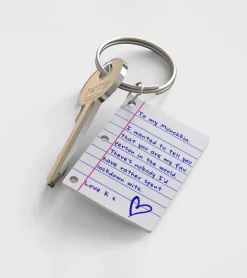 To my Munchkin
I wanted to tell you
that you are my fav
person in the world
There's nobody I'd
have rather spent
lockdown with
Love K x